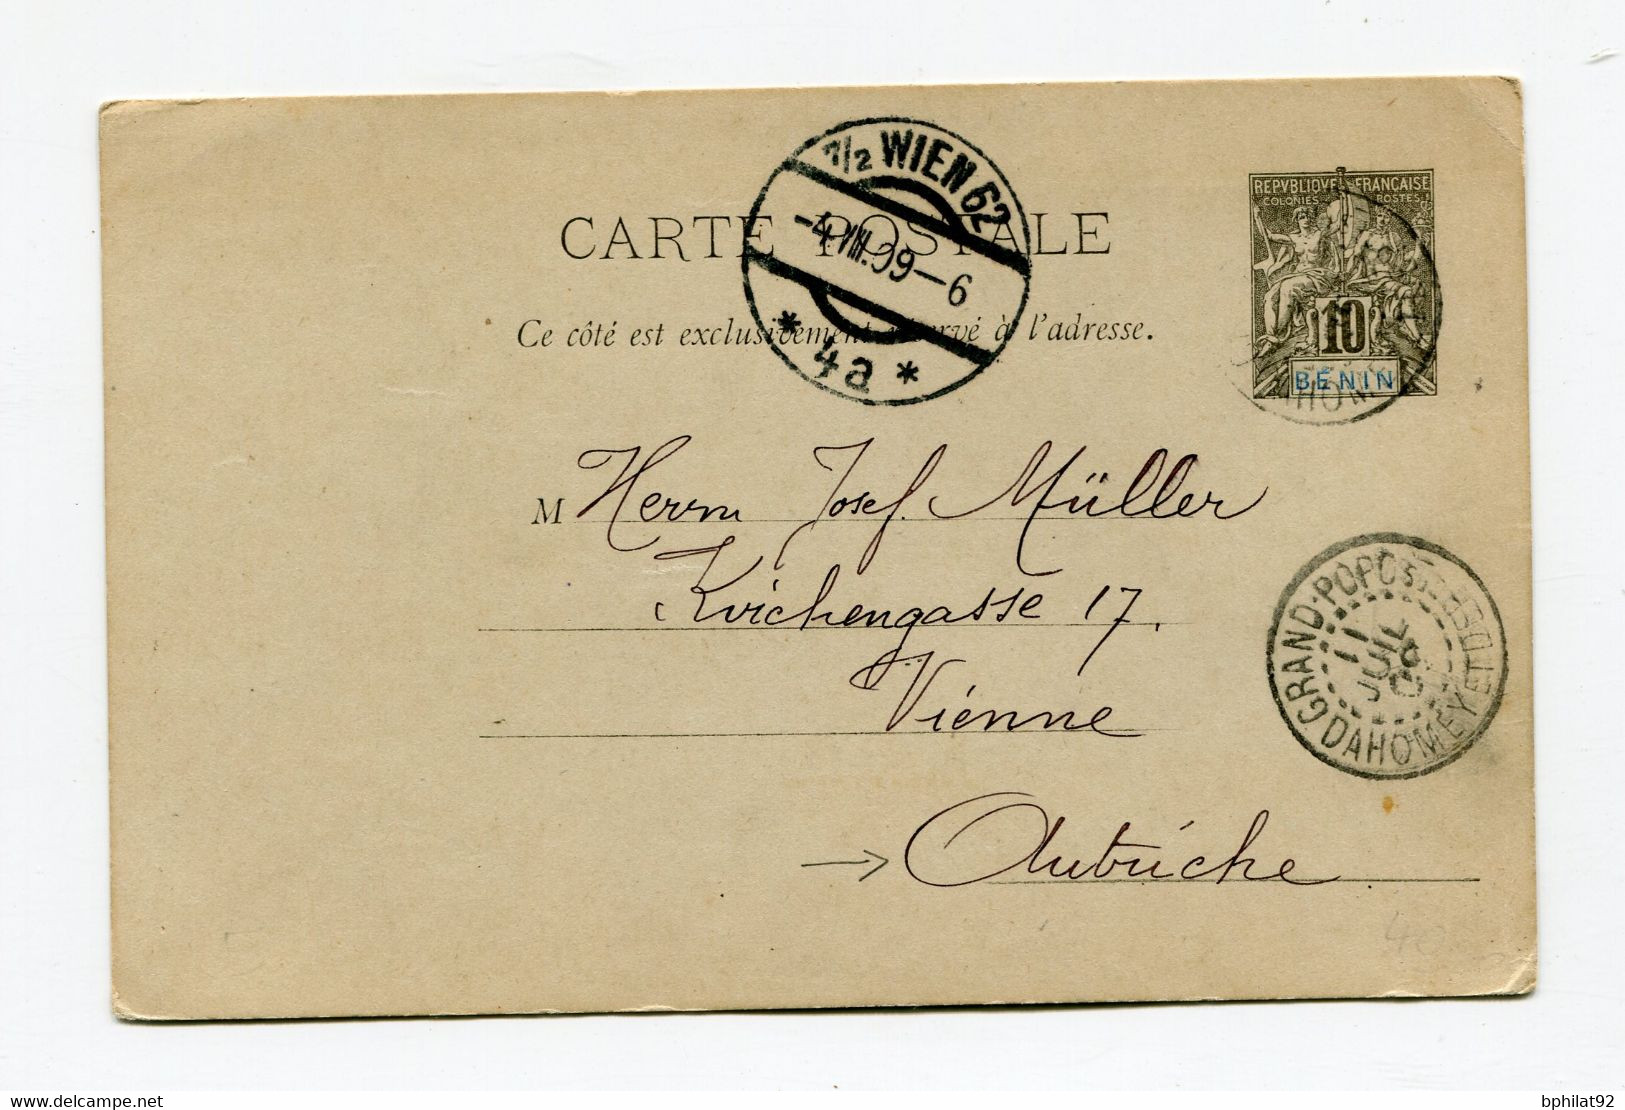 7/2 WIEN 62
-4.VIII.09-6
* 4a *
REPVBLIQVE FRANÇAISE
COLONIES POSTES
10
BÉNIN
CARTE POSTALE
Ce côté est exclusivement réservé à l'adresse.
M Herrn Josef Müller
Kirchengasse 17.
Vienne
Autriche
GRAND-POPO
11 JUIL
DAHOMEY ET DEP
40
Delcampe.net
bphilat92